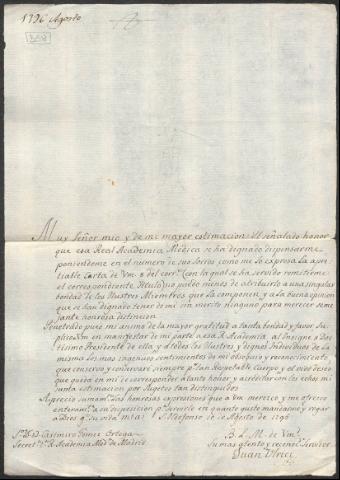 1796 Agosto
Muy Señor mio y de mi mayor estimacion: El señalado honor
que esa Real Academia Médica se ha dignado dispensarme
poniendome en el numero de sus Socios como me lo expresa la apre-
ciable Carta de Vm. 8 del corr.te con la qual se ha servido remitirme
el correspondiente Titulo, no puedo menos de atribuirlo a una singular
bondad de los Ilustres Miembros que la componen, y a la buena opinion
que se han dignado tener de mi sin merito ninguno para merecer seme-
jante honrosa distincion.
Penetrado pues mi animo de la mayor gratitud a tanta bondad y favor Su-
plico a Vm. en manifestar de mi parte a esa R. Academia, al Insigne y Doc-
tisimo Presidente de ella y a todos los Ilustres y dignos Individuos de la
misma los mas ingenuos sentimientos de mi obsequio y reconocimiento,
que conservo y conservaré siempre p.r tan Respetable Cuerpo, y el vivo deseo
que queda en mi de corresponder a tanto honor, y acreditar con los echos mi
junta estimacion por Sugetos tan distinguidos.
Aprecio sumam.te las honrosas expresiones que a Vm. merezco y me ofrezco
enteram.te a su disposicion p.a servirle en quanto guste mandarme y rogar
a Dios g.e su vida m.s a.s S.n Ildefonso 10 de Agosto de 1796
B. L. M. de Vm.
Su mas atento y reconoc.do Servidor
Juan Vlrici
S.or D.n Casimiro Gomez Ortega
Secret.o de la R. Academia Med.a de Madrid